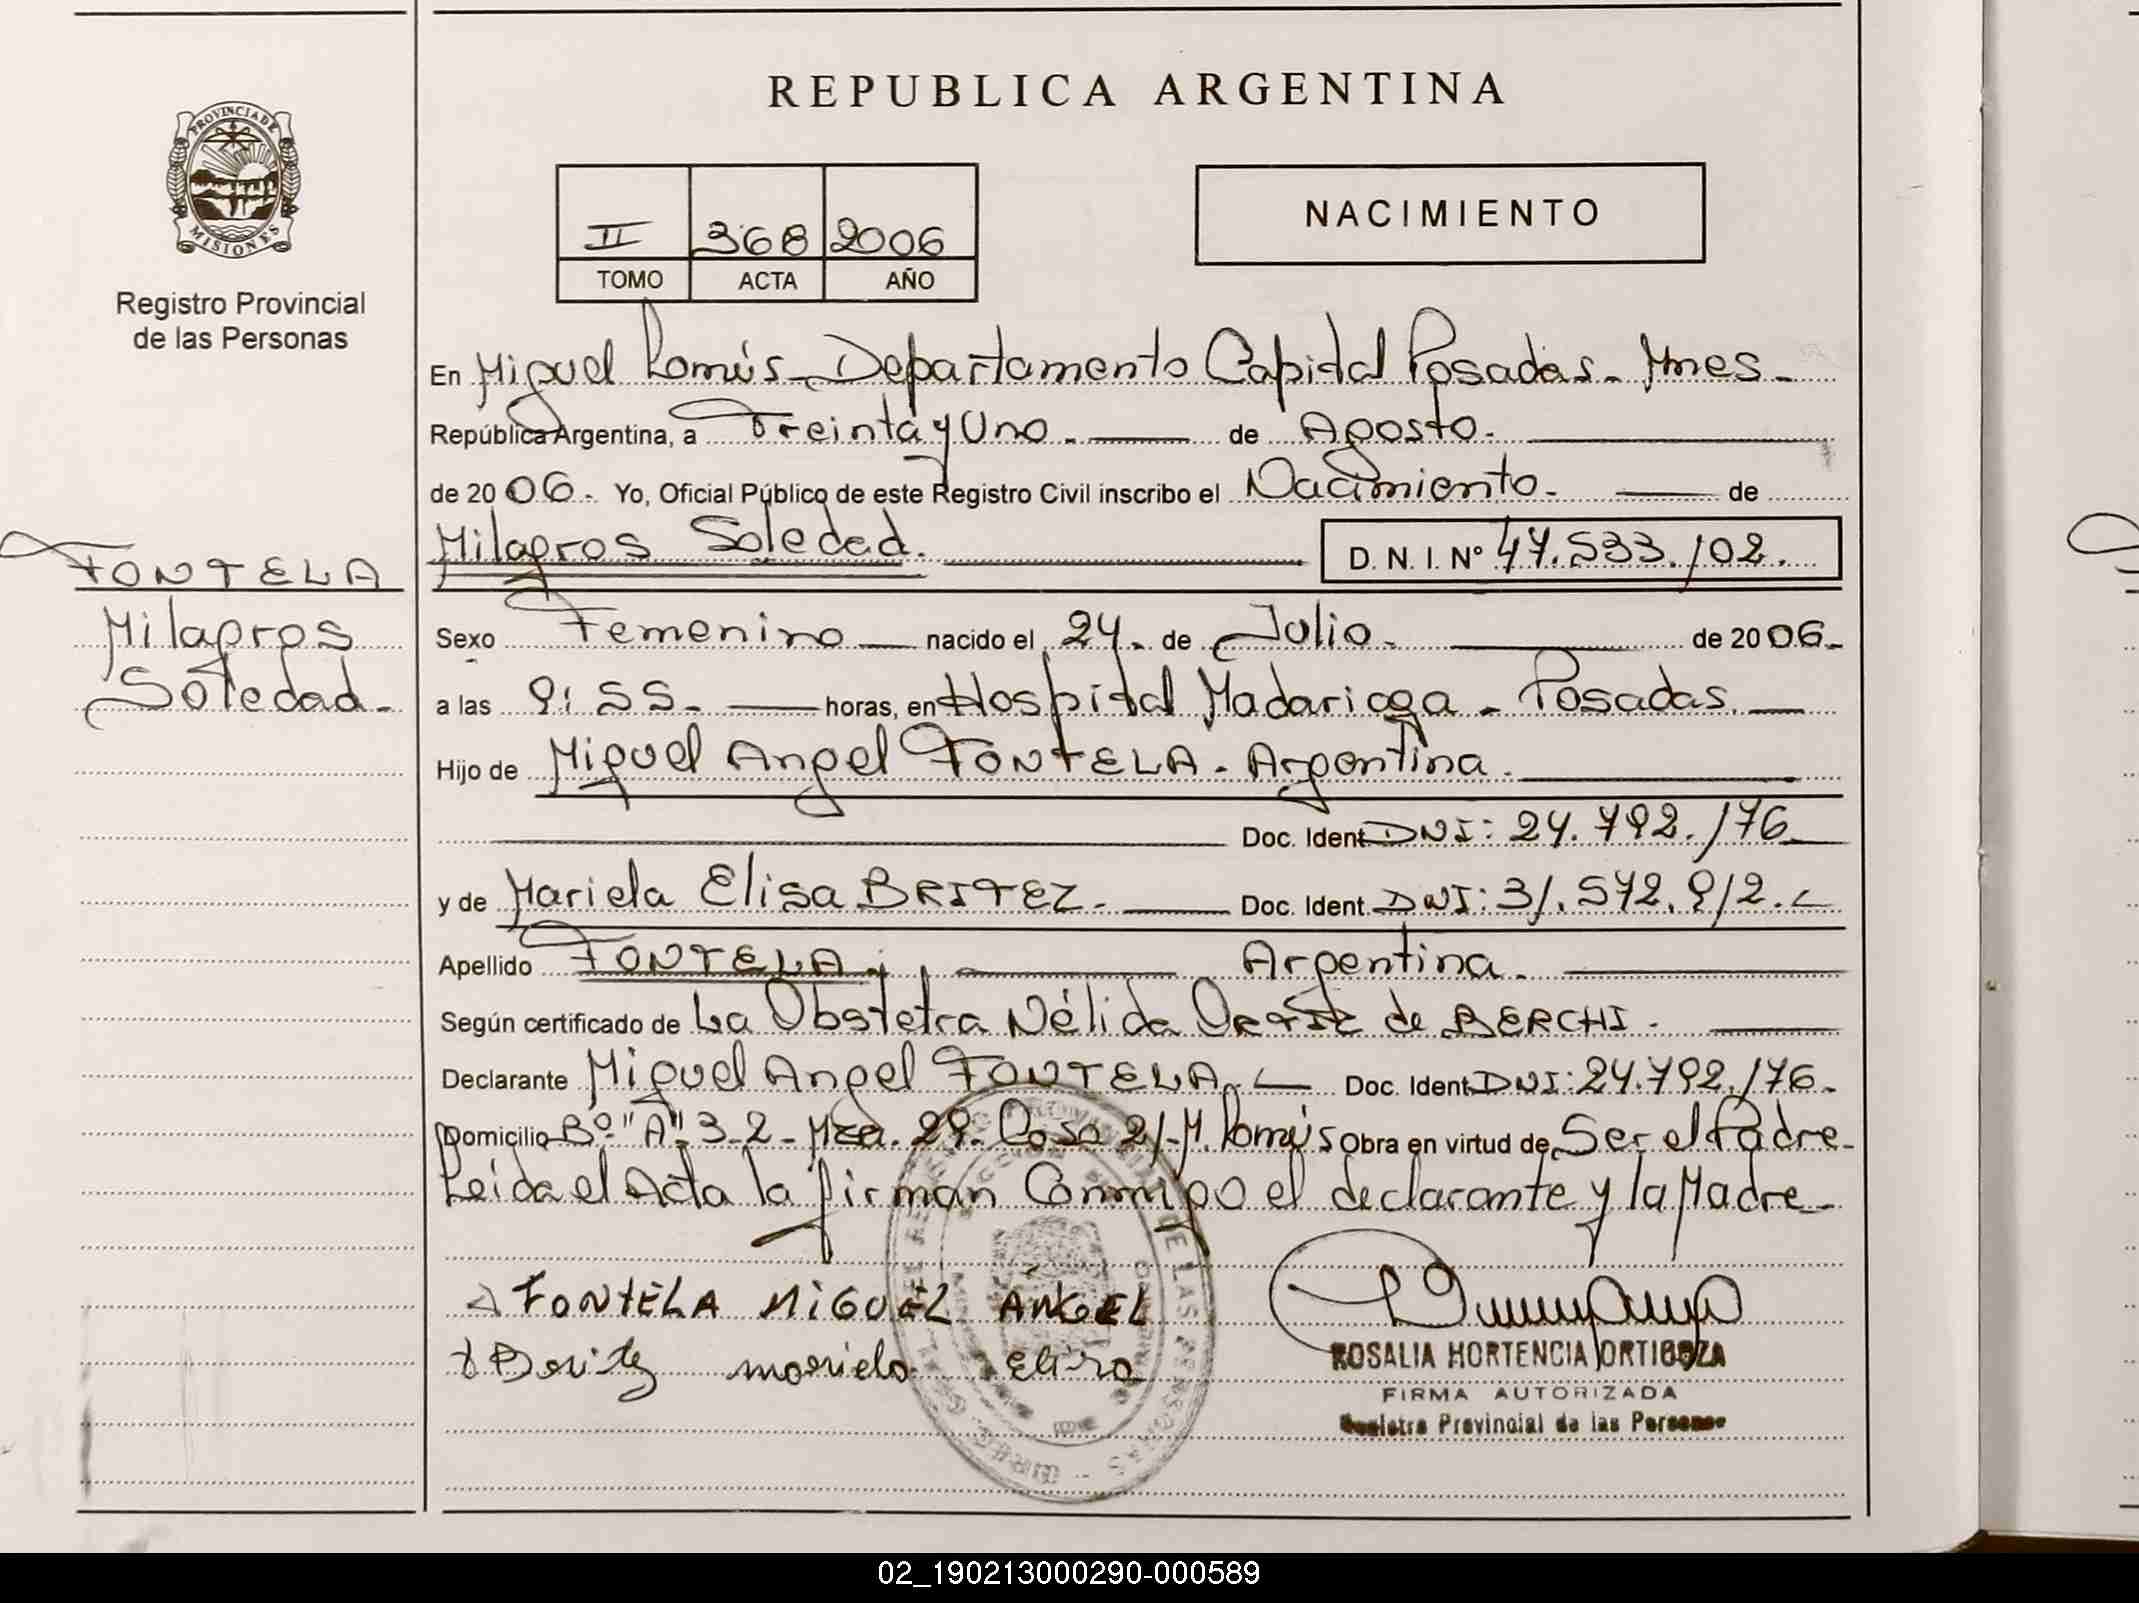 REPUBLICA ARGENTINA
PROVINCIA DE
MISIONES
Registro Provincial
de las Personas
II 368 2006
TOMO ACTA AÑO
NACIMIENTO
En Miguel Lanús - Departamento Capital Posadas - Mnes -
República Argentina, a Treinta y Uno . de Agosto.
de 20 06. Yo, Oficial Público de este Registro Civil inscribo el Nacimiento. de
Milagros Soledad. D. N. I. Nº 47.533.102.
FONTELA
Milagros
Soledad -
Sexo Femenino nacido el 24. de Julio. de 2006.
a las 9:55. horas, en Hospital Madariaga - Posadas.
Hijo de Miguel Angel FONTELA. Argentina.
Doc. Ident. DNI: 24.792.176
y de Mariela Elisa BRITEZ. Doc. Ident. DNI: 31.572.912.
Apellido FONTELA. Argentina.
Según certificado de La Obstetra Nélida ORTIZ de BERCHI.
Declarante Miguel Angel FONTELA. Doc. Ident. DNI: 24.792.176.
Domicilio Bº "A" 3-2 - Mza. 29. Casa 21-M. Lanús Obra en virtud de Ser el Padre -
Leida el Acta la firman Conmigo el declarante y la Madre -
FONTELA MIGUEL ÁNGEL
Britez mariela Elisa
ROSALIA HORTENCIA ORTIGOZA
FIRMA AUTORIZADA
Registro Provincial de las Personas
02_190213000290-000589